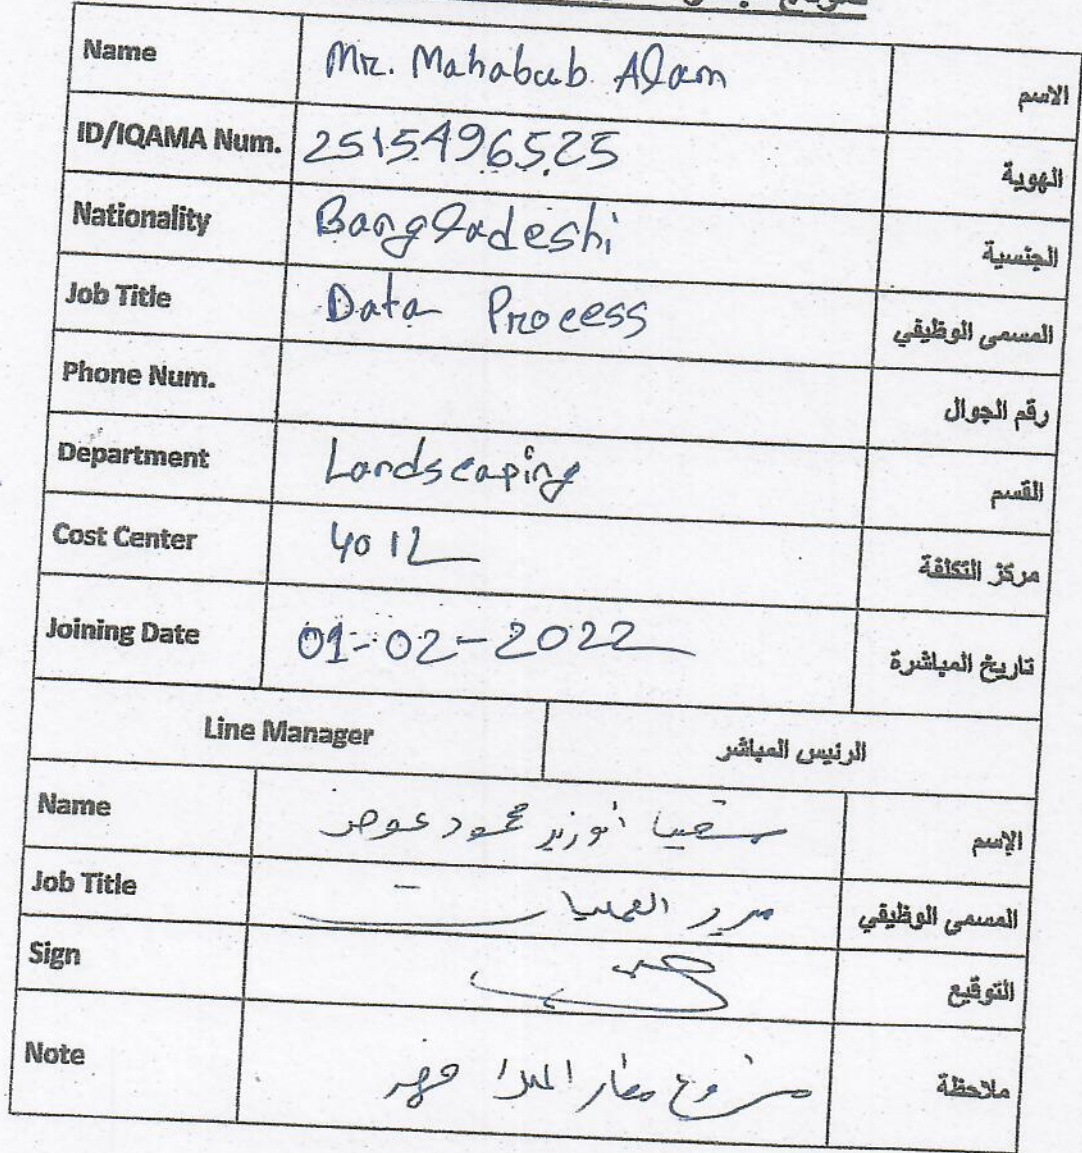 Name Mr. Mahabub Alam الاسم
ID/IQAMA Num. 2515496525 الهوية
Nationality Bangladeshi الجنسية
Job Title Data Process المسمى الوظيفي
Phone Num. رقم الجوال
Department Landscaping القسم
Cost Center 4012 مركز التكلفة
Joining Date 01-02-2022 تاريخ المباشرة
Line Manager الرئيس المباشر
Name محمود عوض الإسم
Job Title مدير العمليات المسمى الوظيفي
Sign التوقيع
Note مشروع مطار الملك فهد ملاحظة